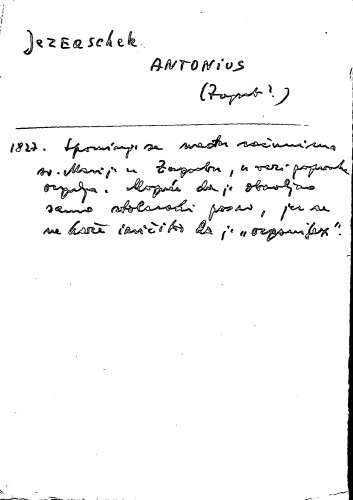 Jezerschek
ANTONIUS
(Zagreb?)
1827. Spominje se među računima
sv. Marije u Zagrebu, u vezi popravka
orgulja. Moguće da je obavljao
samo stolarski posao, jer se
ne kaže izričito da je "organifex".